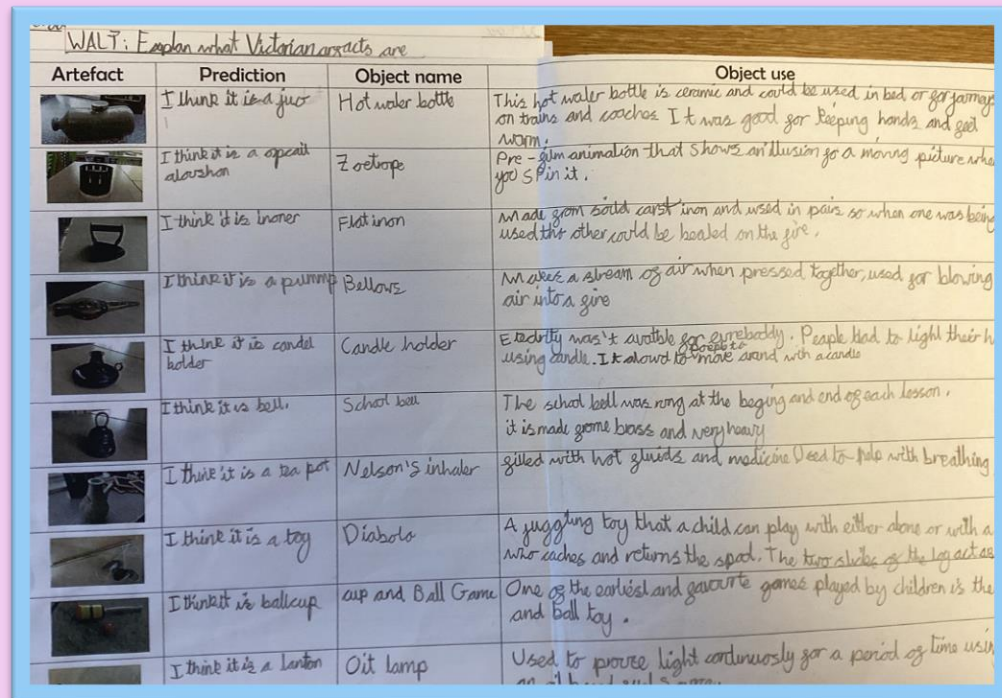 WALT: Explan what Victorian arzacts are
Artefact Prediction Object name Object use
I think it is a jug
Hot water bottle
This hot water bottle is ceramic and could be used in bed or for journeys
on trains and coaches It was good for keeping hands and feel
warm.
I think it is a opcail
aloushon
Zoetrope
Pre-film animation that shows an illusion fo a moving picture whe
you spin it.
I think it is inoner
Flat inon
Made from soild carst inon and used in pairs so when one was being
used the other could be heated on the fire.
I think it is a pummp
Bellows
Makes a stream of air when pressed together, used for blowing
air into a fire
I think it is candel
holder
Candle holder
wasn't for . People had to light their h
using candle. It alowd to move arand with a candle
I think it is bell.
School bell
The schol bell was rong at the beging and end of each lesson.
it is made frome brass and very heavy
I think it is a tea pot
Nelson's inhaler
filled with hot fluids and medicine Used to help with breathing
I think it is a toy
Diabolo
A juggling toy that a child can play with either alone or with a
who caches and returns the spool. The two of the log act as
I think it is ballcup
cup and Ball Game
One of the earliest and favourite games played by children is the
and ball toy.
I think it is a lanton
Oil lamp
Used to light continuosly for a period of time usin